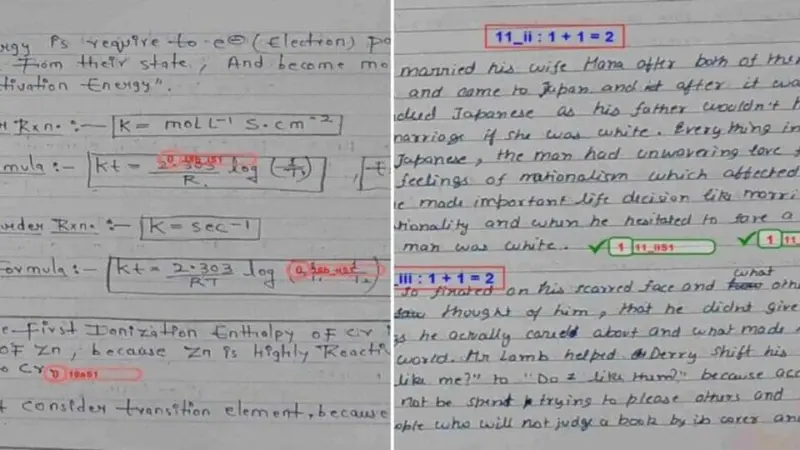 rgy is require to e⊖ (Electron) p
From their state, And become mo
tivation Energy".
Rxn. :— K = mol L⁻¹ S. cm⁻²
mula :— Kt = 2.303 log
R.
order Rxn. :— K = sec⁻¹
Formula :— Kt = 2.303 log
RT
e First Ionization Enthalpy of Cr
OF Zn, because Zn is Highly Reacti
o Cr
0 10aS1
t consider transition element, because
11_ii : 1 + 1 = 2
married his wife Hana after both of
and came to Japan and after it wa
Japanese as his father wouldn't h
marriage if she was white. Everything in
Japanese, the man had unwavering love
feelings of nationalism which affected
e made important life decision like marri
tionality and when he hesitated to a
man was white.
1 11_iiS1
1 11_
_iii : 1 + 1 = 2
what
so on his scarred face and
thought of him, that he didnt give
he about and what made
world. Mr Lamb helped Derry shift his
like me?" to "Do I like them?" because
not be trying to please others and
ople who will not judge a book by its cover and